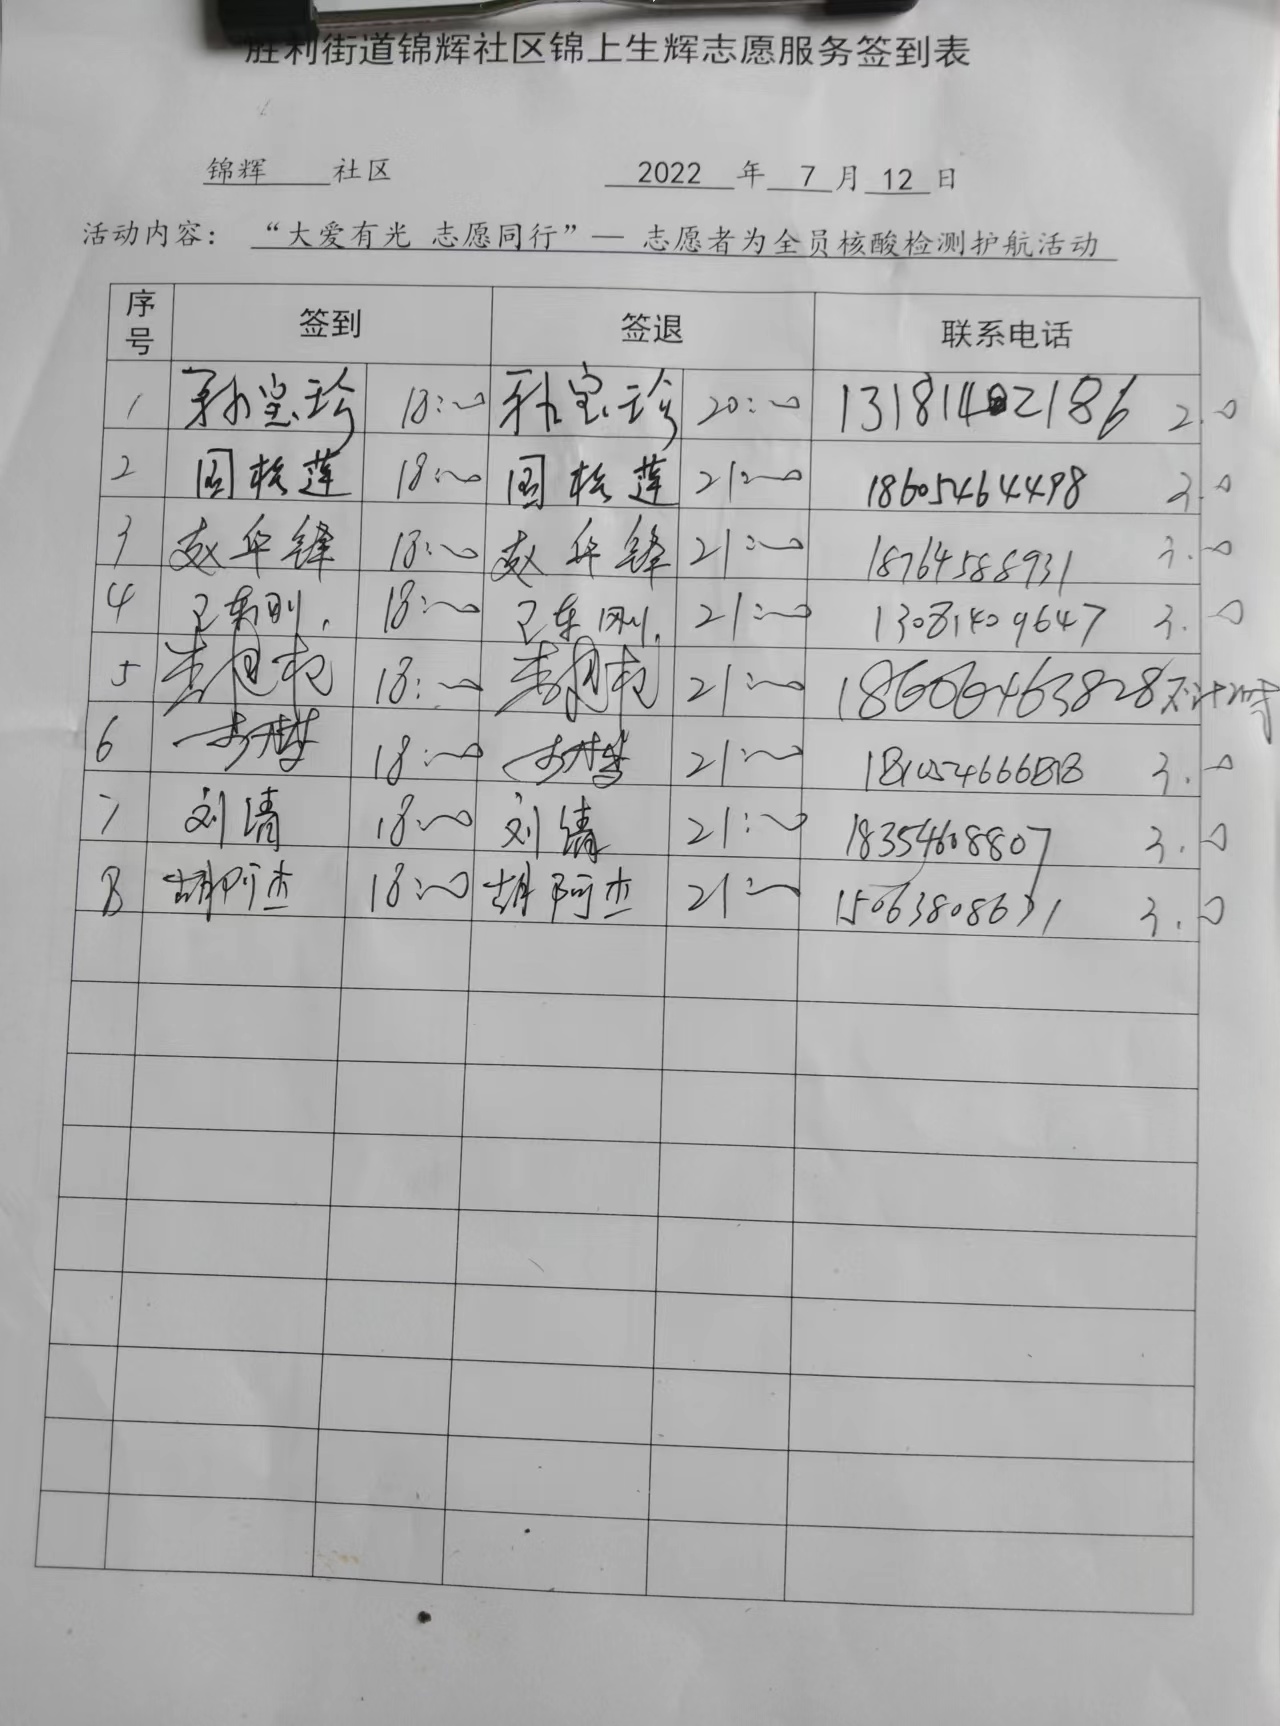 胜利街道锦辉社区锦上生辉志愿服务签到表
锦辉 社区 2022 年 7 月 12 日
活动内容: “大爱有光 志愿同行”— 志愿者为全员核酸检测护航活动
序号 签到 签退 联系电话
1 孙宝珍 18:00 孙宝珍 20:00 13181402186 2.0
2 国桂莲 18:00 国桂莲 21:00 18605464498 3.0
3 赵华锋 18:00 赵华锋 21:00 18764588931 3.0
4 18:00 21:00 13081409647 3.0
5 18:00 21:00 18606463828 不计时
6 18:00 21:00 3.0
7 刘清 18:00 刘倩 21:00 18354608807 3.0
8 胡阿杰 18:00 胡阿杰 21:00 15063808631 3.0